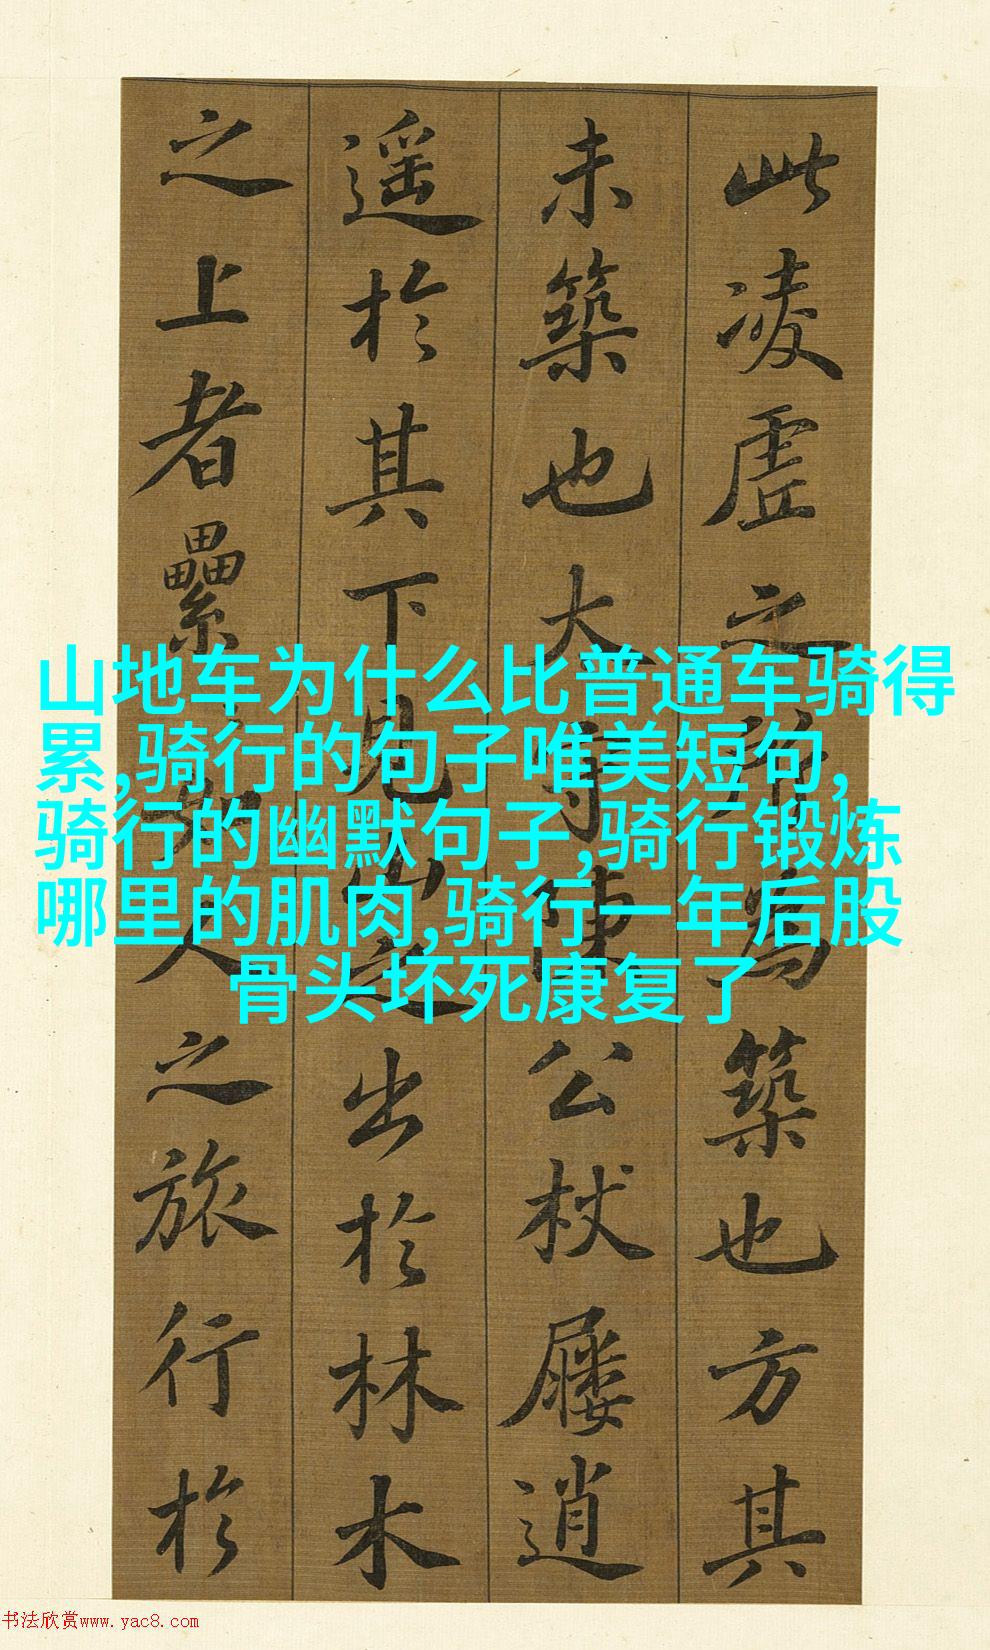 此凌虚之所為築也方其
未築也大守陳公杖屨逍
遥於其下見山之出於林木
之上者纍纍如人之旅行於
山地车为什么比普通车骑得
累,骑行的句子唯美短句,
骑行的幽默句子,骑行锻炼
哪里的肌肉,骑行一年后股
骨头坏死康复了
书法欣赏www.yac8.com